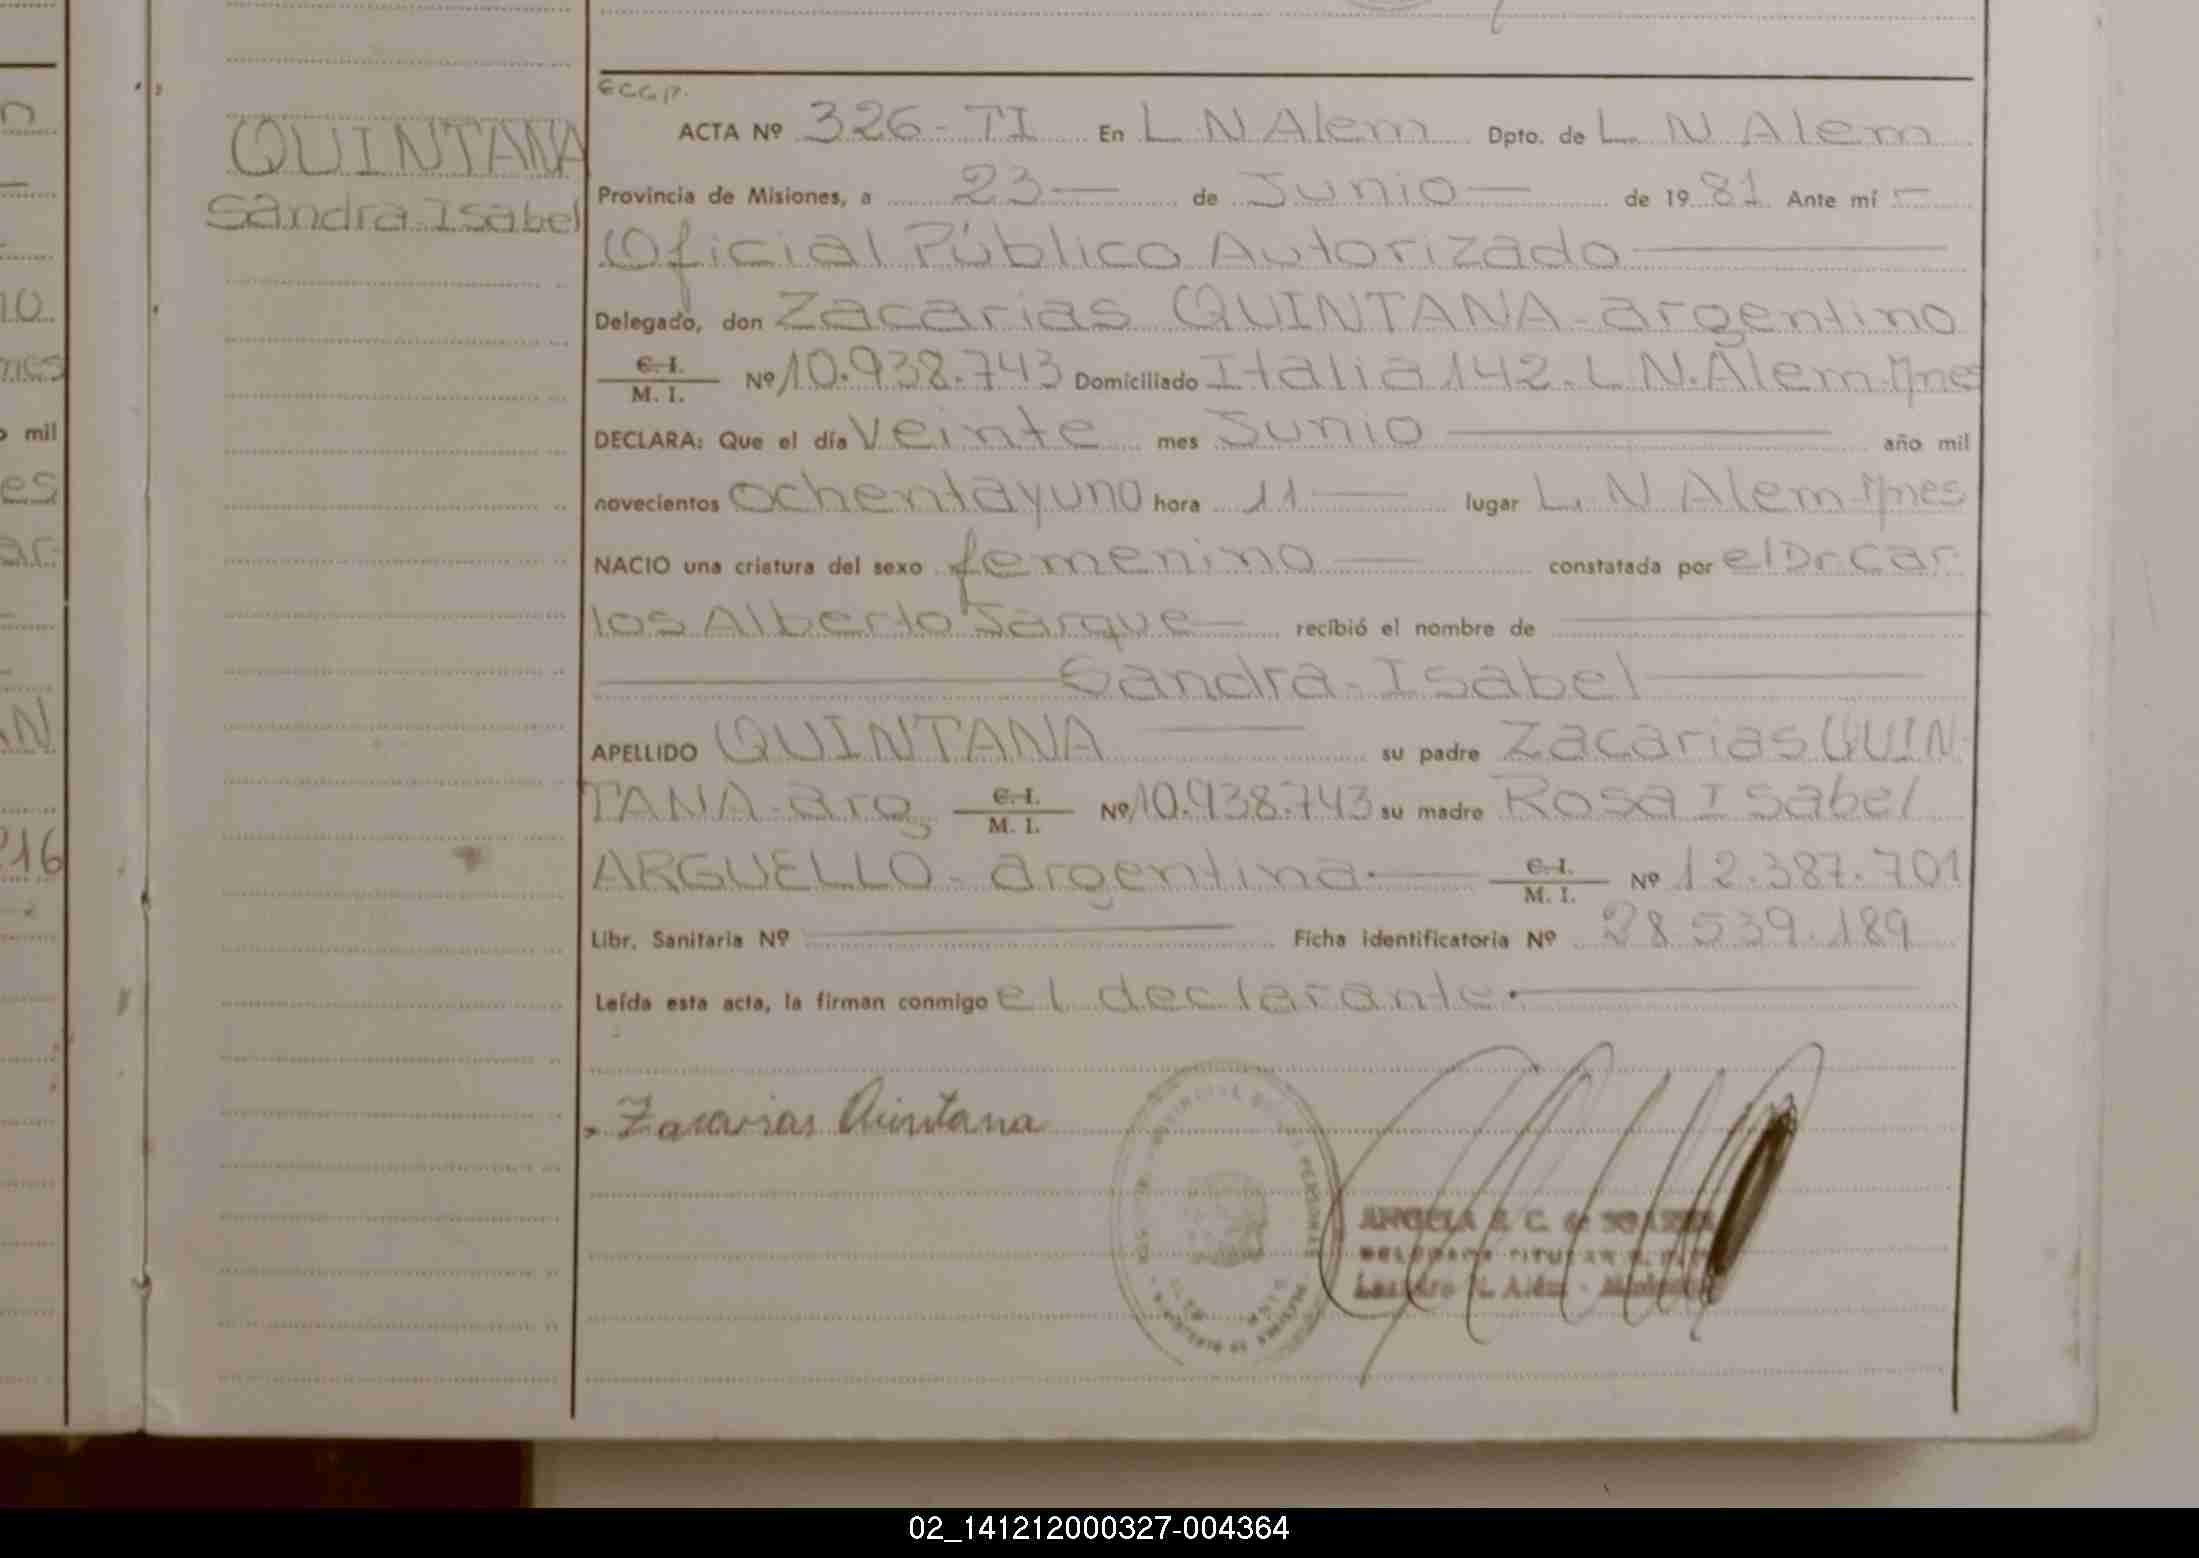 QUINTANA
Sandra Isabel
ACTA Nº 326-TI En L N Alem Dpto. de L. N Alem
Provincia de Misiones, a 23 de Junio de 1981 Ante mí
Oficial Público Autorizado
Delegado, don Zacarias QUINTANA-argentino
C. I.
M. I. Nº 10.938.743 Domiciliado Italia 142. L N. Alem. Mnes
DECLARA: Que el día Veinte mes Junio año mil
novecientos ochentayuno hora 11 lugar L. N Alem-Mnes
NACIO una criatura del sexo femenino constatada por el Dr Car
los Alberto Jarque recibió el nombre de
Sandra-Isabel
APELLIDO QUINTANA su padre Zacarias QUIN
TANA-arg C. I.
M. I. Nº 10.938.743 su madre Rosa Isabel
ARGUELLO- argentina. C. I.
M. I. Nº 12.387.701
Libr. Sanitaria Nº Ficha identificatoria Nº 28 539.189
Leída esta acta, la firman conmigo el declarante.
Zacarias Quintana
ANGELA
Leandro N. Alem - Misiones
no
mes
o mil
es
ar
AN
216
02_141212000327-004364